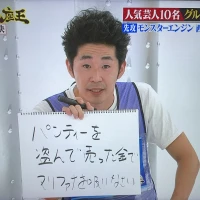 人気芸人10名 グル
先攻 モンスターエンジン
パンティーを
盗んで売った金で
マリファナを吸いなさい